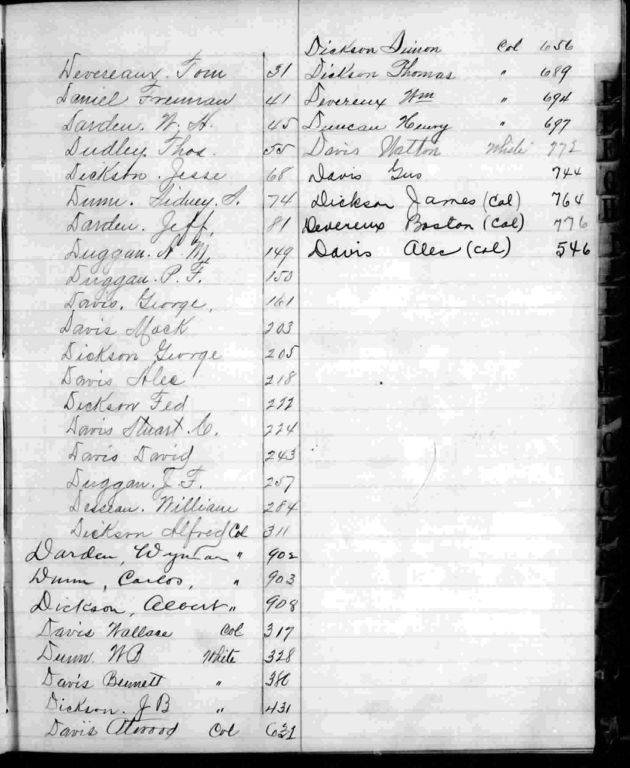 Devereaux, Tom 31
Daniel Freeman 41
Darden. W. H. 45
Dudley. Thos. 55
Dickson. Jesse 68
Dunn. Sidney. S. 74
Darden. Jeff. 81
Duggan. N. M. 149
Duggan. P. F. 150
Davis. George. 161
Davis Mack 203
Dickson George 205
Davis Alec 218
Dickson Fed 222
Davis Stuart C. 224
Davis David 243
Duggan. J. F. 257
William 284
Dickson Alfred Col 311
Darden, " 902
Dunn, Carlos, " 903
Dickson, Albert " 908
Davis Wallace Col 317
Dunn WB White 328
Davis Bennett " 380
Dickson. J B " 431
Davis Atwood Col
Dickson Simon Col 656
Dickson Thomas " 689
Devereux Wm " 694
Duncan Henry " 697
Davis Watton White 772
Davis Gus 744
Dickson James (Col) 764
Devereux Boston (Col) 776
Davis Alec (Col) 546